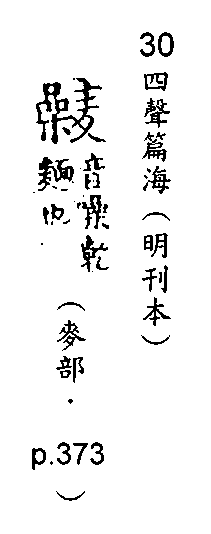 30 四聲篇海（明刊本）
音
乾
麵也
（麥部．p.373）